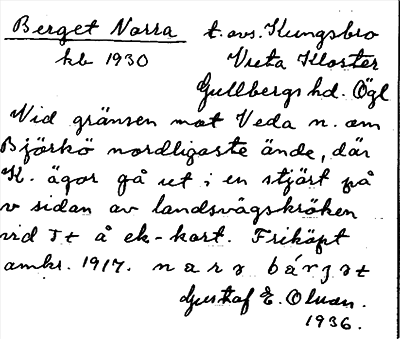 Berget Norra t. avs. Kungsbro
hb 1930 Vreta Kloster
Gullbergs hd. Ögl
Vid gränsen mot Veda n. om
Björkö nordligaste ände, där
K. ägor gå ut i en stjärt på
v sidan av landsvägskröken
vid St å ek-kart. Friköpt
omkr. 1917. norə bárʒət
Gustaf E. Olson.
1936.